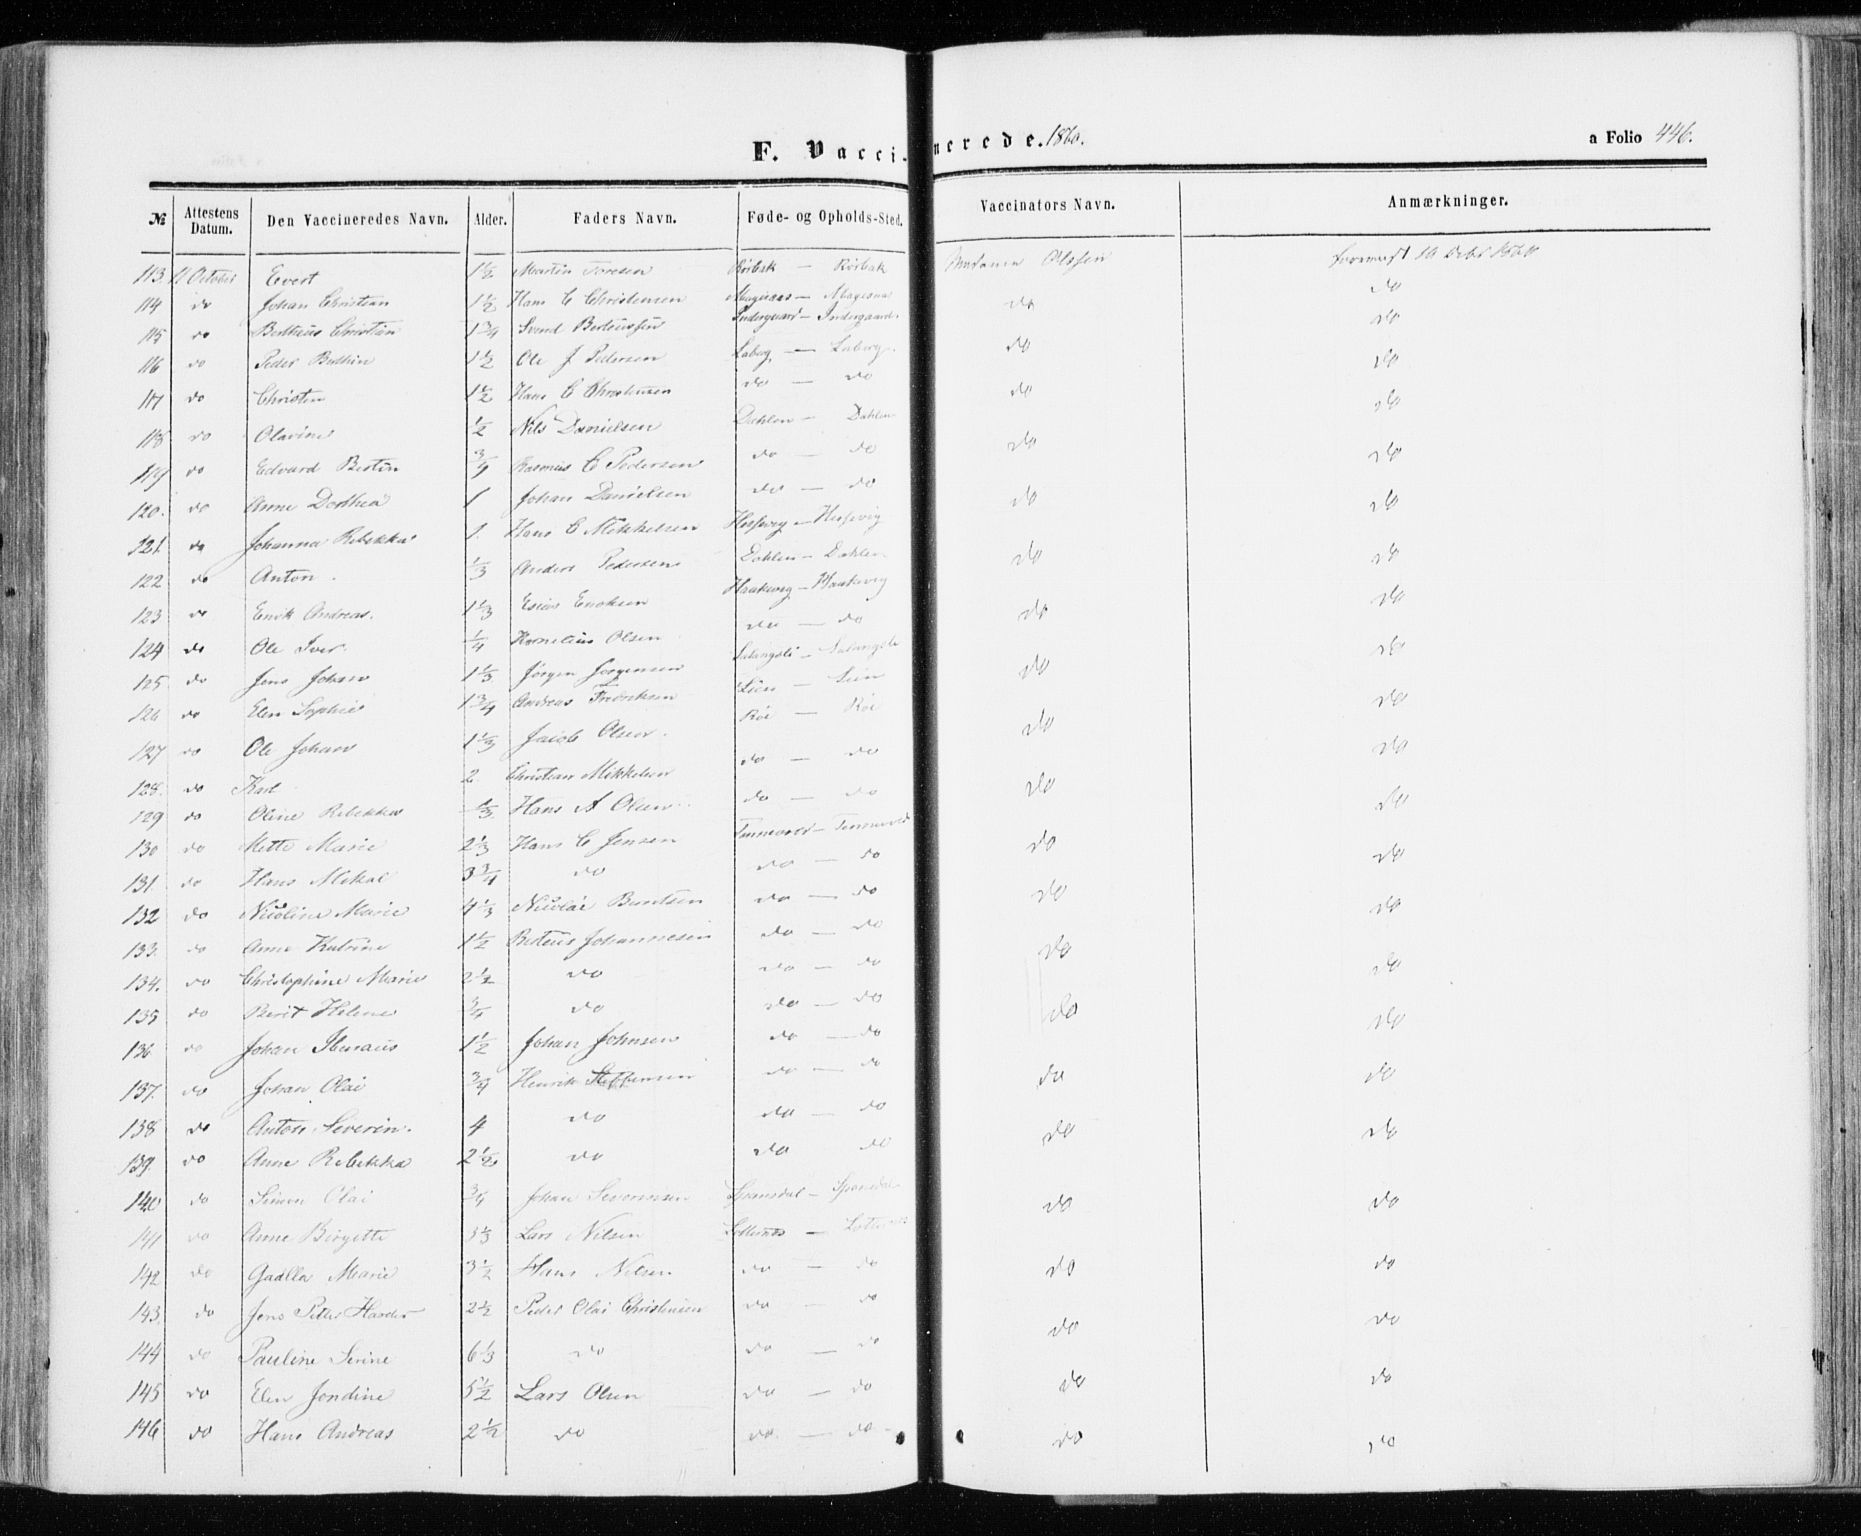 F. Vaccinerede. 1860.
a Folio 446.
№ Attestens Datum. Den Vaccineredes Navn. Alder. Faders Navn. Føde- og Opholds-Sted. Vaccinators Navn. Anmærkninger.
113. 11 October Evert 1 1/2 Martin Toresen Rørbak — Rørbak Madame Olssen
114 do Johan Christian 1 1/2 Hans C Christensen do do
115 do Bertheus Christian 1 3/4 Svend Berteussen Indergaard — Indergaard do
116 do Peder Berthin 1 1/2 Ole J Pedersen Laberg — Laberg do do
117 do Christen 1 1/2 Hans C Christensen do — do do do
118 do Olavine 1/2 Nils Danielsen Dahlen — Dahlen do
119 do Edvard Bertin 3/4 Rasmus C Pedersen do — do do
120. do Anne Dorthea 1 Johan Danielsen do — do do do
121. do Johanna Rebekka 1. Hans C Mikkelsen
122 do Anton 1/3 Anders Pedersen Dahlen — Dahlen do do
123 do Enok Andreas. 1 1/3 Esias Enoksen Haakvig — Haakvig do do
124 do Ole Iver. 1/4 Kornelius Olsen do — do do
125 do Jens Johan 1 1/3 Jørgen Jørgensen do do
126 do Elen Sophie 1 3/4 Andreas Fredriksen Lien — Lien do
127 do Ole Johan 1 1/3 Jacob Olsen Røe — Røe do do
128. do Karl 2. Christian Mikkelsen do — do do
129 do Oline Rebekka Hans A Olsen do — do do
130 do Mette Marie 2 1/3 Hans C Jensen do do
131. do Hans Mikal 3 3/4 do do — do
132 do Nicoline Marie 4 1/3 Nicolai Berntsen do — do do do
133. do Anne Katrine 1 1/2 Berteus Johannesen do — do do
134. do Christophine Marie 2 1/2 do do — do do
135 do Berit Helene 3/4 do do — do do do
136 do Johan 1 1/2 Johan Johnsen do — do
137. do Johan Olai 3/4 Henrik Steffensen do — do do do
138 do Anton Severin. 4 do do — do do do
139. do Anne Rebekka 2 1/2 do do do
140 do Simon Olai 3/4 Johan Sevrensen Spansdal — Spansdal do do
141 do Anne Birgette 5 1/3 Lars Nilsen
142 do Gadlla Marie 3 1/2 Hans Nilsen do — do do do
143. do Jens Peter Harder 2 1/2 Peder Olai Christensen do — do do do
144 do Pauline Serine 6 1/3 do do — do
145 do Elen Jondine 5 1/2 Lars Olsen do — do do do
146 do Hans Andreas 2 1/2 do do — do do do